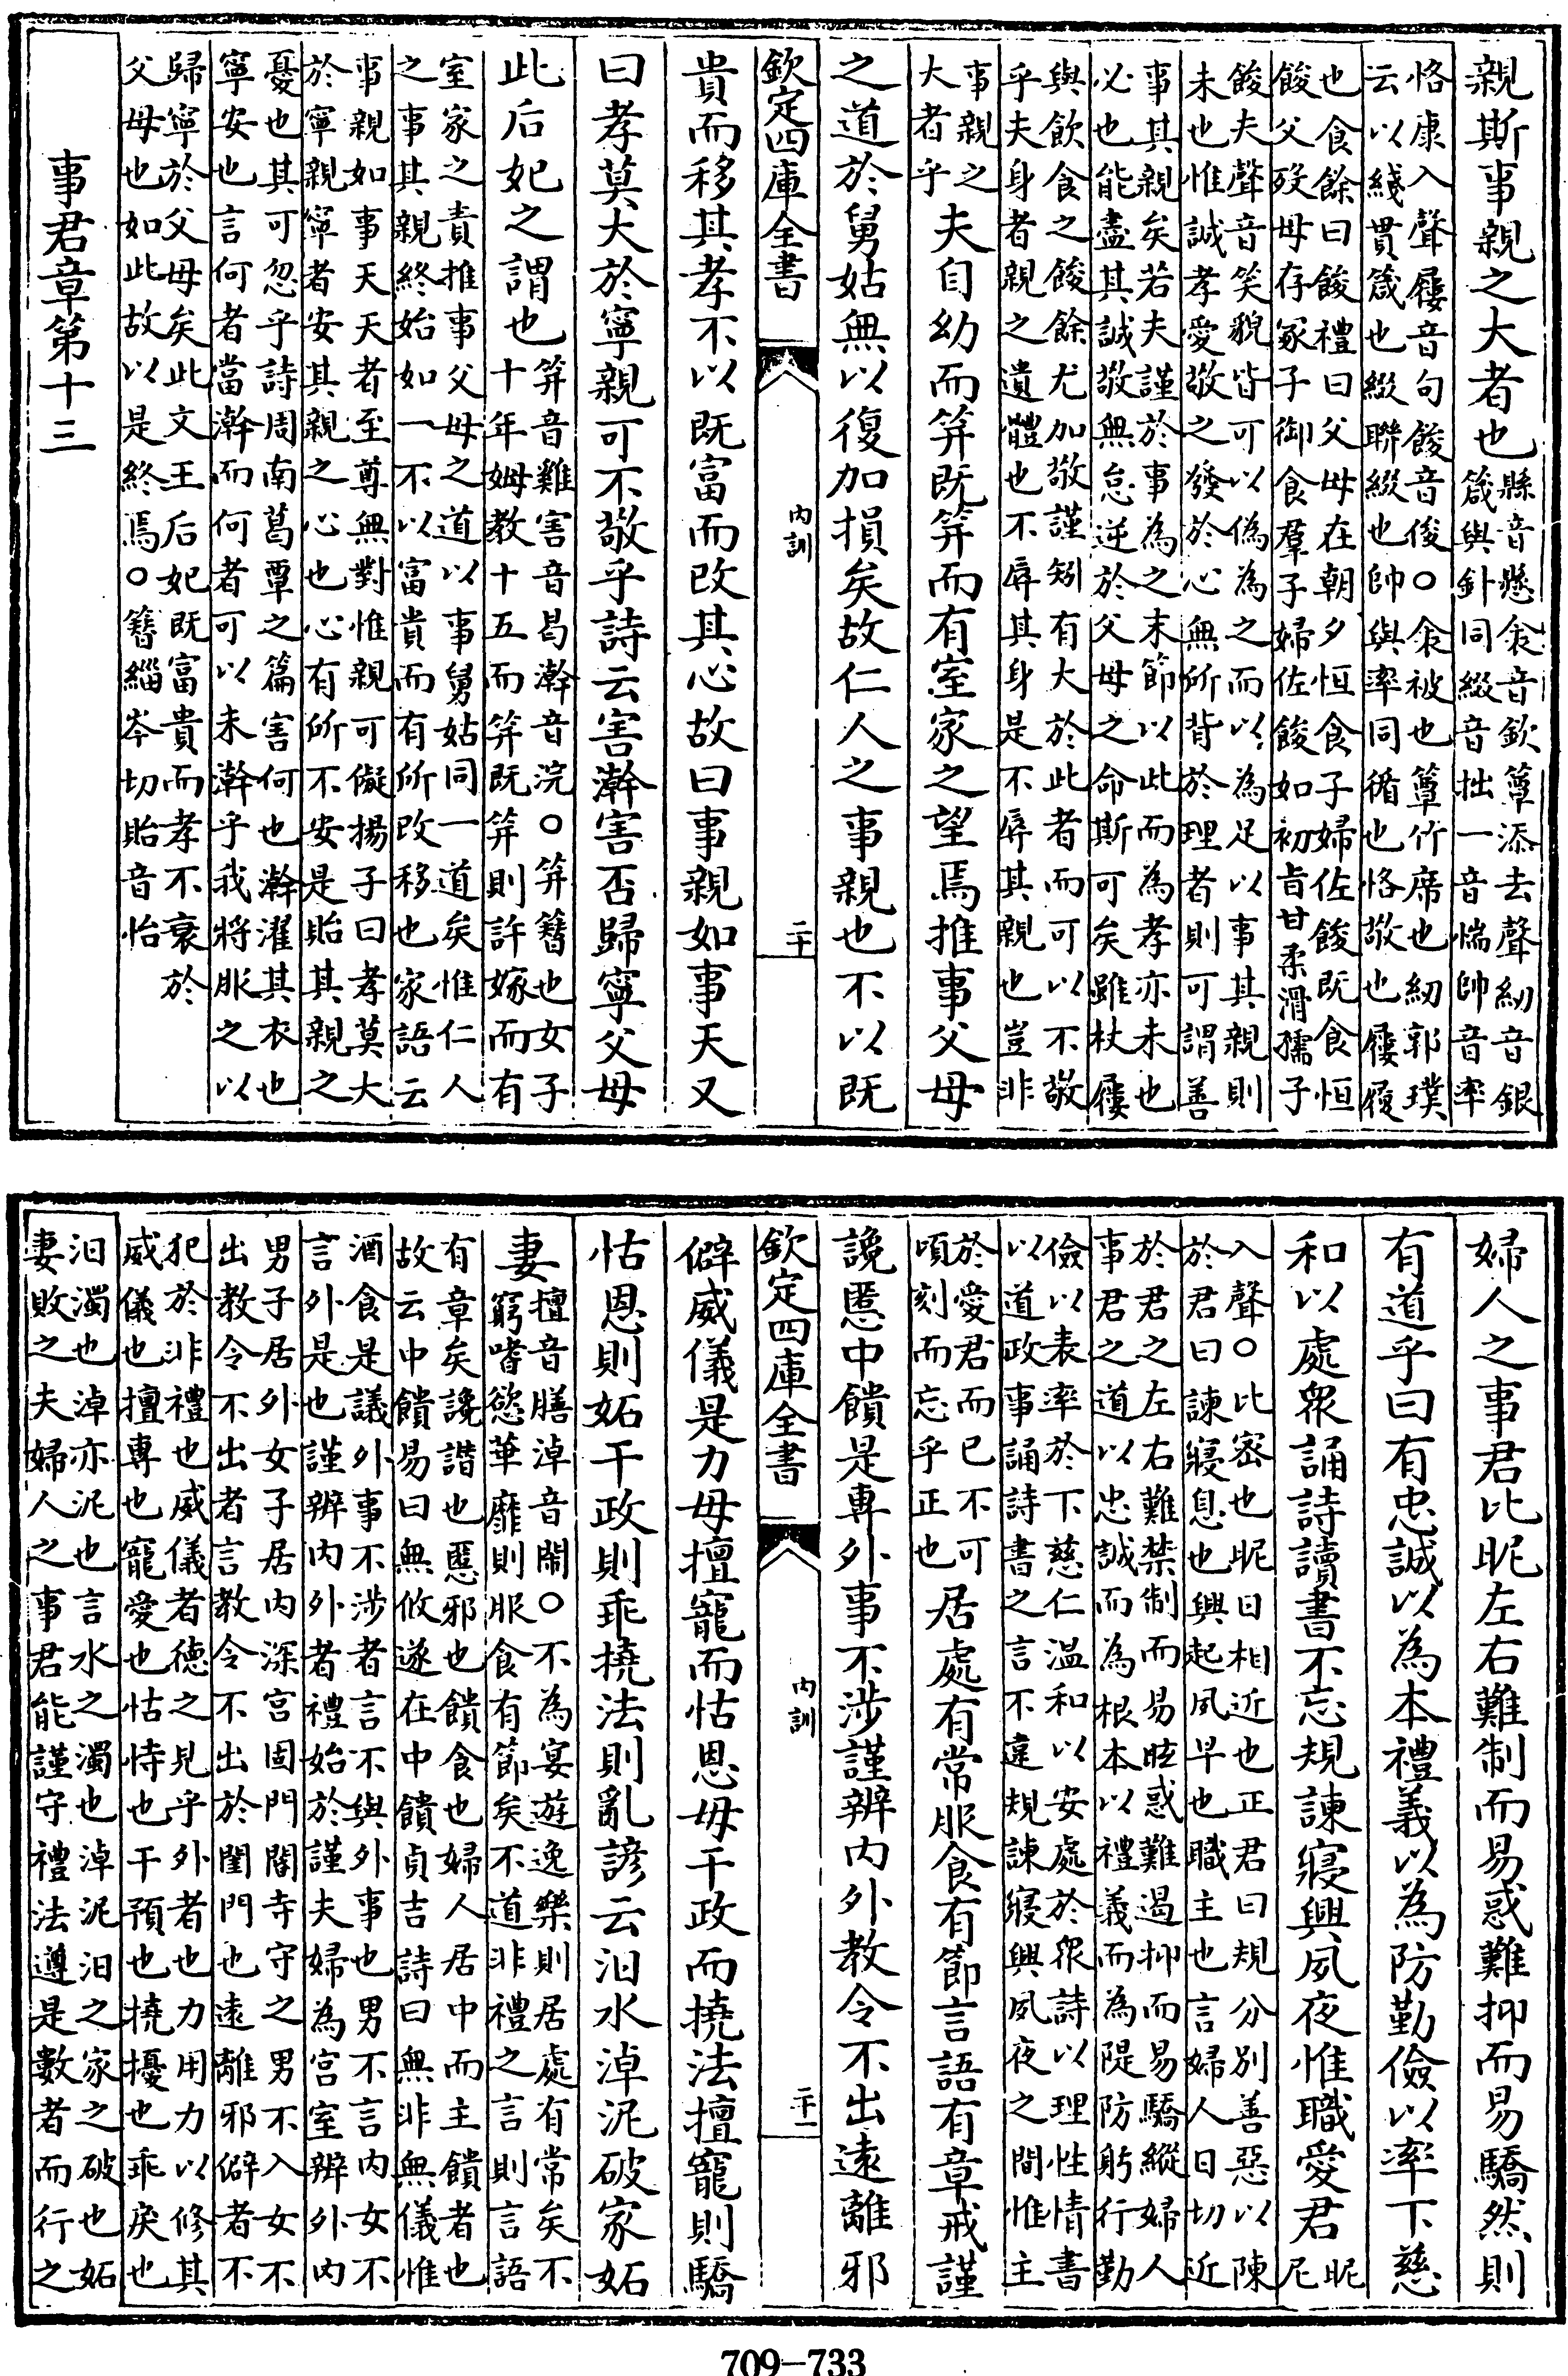 親斯事親之大者也縣音懸衾音欽簟添去聲紉音銀
箴與針同綴音拙一音惴帥音率
恪康入聲屨音句餕音俊○衾被也簟竹席也紉郭璞
云以綫貫箴也綴聯綴也帥與率同循也恪敬也屨履
也食餘曰餕禮曰父母在朝夕恒食子婦佐餕既食恒
餕父殁母存冢子御食羣子婦佐餕如初旨甘柔滑孺子
餕夫聲音笑貌皆可以偽為之而以為足以事其親則
未也惟誠孝愛敬之發於心無所背於理者則可謂善
事其親矣若夫謹於事為之末節以此而為孝亦未也
必也能盡其誠敬無怠逆於父母之命斯可矣雖杖屨
與飲食之餕餘尤加敬謹矧有大於此者而可以不敬
乎夫身者親之遺體也不辱其身是不辱其親也豈非
事親之
大者乎夫自幼而笄既笄而有室家之望焉推事父母
之道於舅姑無以復加損矣故仁人之事親也不以既
欽定四庫全書
內訓
二十
貴而移其孝不以既富而改其心故曰事親如事天又
曰孝莫大於寧親可不敬乎詩云害澣害否歸寧父母
此后妃之謂也笄音雞害音曷澣音浣○笄簪也女子
十年姆教十五而笄既笄則許嫁而有
室家之責推事父母之道以事舅姑同一道矣惟仁人
之事其親終始如一不以富貴而有所改移也家語云
事親如事天天者至尊無對惟親可儗揚子曰孝莫大
於寧親寧者安其親之心也心有所不安是貽其親之
憂也其可忽乎詩周南葛覃之篇害何也澣濯其衣也
寧安也言何者當澣而何者可以未澣乎我將服之以
歸寧於父母矣此文王后妃既富貴而孝不衰於
父母也如此故以是終焉○簪緇岑切貽音怡
事君章第十三
婦人之事君比昵左右難制而易惑難抑而易驕然則
有道乎曰有忠誠以為本禮義以為防勤儉以率下慈
和以處衆誦詩讀書不忘規諫寢興夙夜惟職愛君昵
尼
入聲○比密也昵日相近也正君曰規分別善惡以陳
於君曰諫寢息也興起夙早也職主也言婦人日切近
於君之左右難禁制而易眩惑難遏抑而易驕縱婦人
事君之道以忠誠而為根本以禮義而為隄防躬行勤
儉以表率於下慈仁温和以安處於衆詩以理性情書
以道政事誦詩書之言不違規諫寢興夙夜之間惟主
於愛君而已不可
頃刻而忘乎正也居處有常服食有節言語有章戒謹
讒慝中饋是專外事不涉謹辨内外教令不出遠離邪
欽定四庫全書
內訓
二十一
僻威儀是力毋擅寵而怙恩毋干政而撓法擅寵則驕
怙恩則妬干政則乖撓法則亂諺云汨水淖泥破家妬
妻擅音膳淖音鬧○不為宴遊逸樂則居處有常矣不
窮嗜慾華靡則服食有節矣不道非禮之言則言語
有章矣讒譖也慝邪也饋食也婦人居中而主饋者也
故云中饋易曰無攸遂在中饋貞吉詩曰無非無儀惟
酒食是議外事不涉者言不與外事也男不言内女不
言外是也謹辨内外者禮始於謹夫婦為宫室辨外内
男子居外女子居内深宫固門閽寺守之男不入女不
出教令不出者言教令不出於閨門也遠離邪僻者不
犯於非禮也威儀者德之見乎外者也力用力以修其
威儀也擅專也寵愛也怙恃也干預也撓擾也乖戾也
汨濁也淖亦泥也言水之濁也淖泥汨之家之破也妬
妻敗之夫婦人之事君能謹守禮法遵是數者而行之
709-733